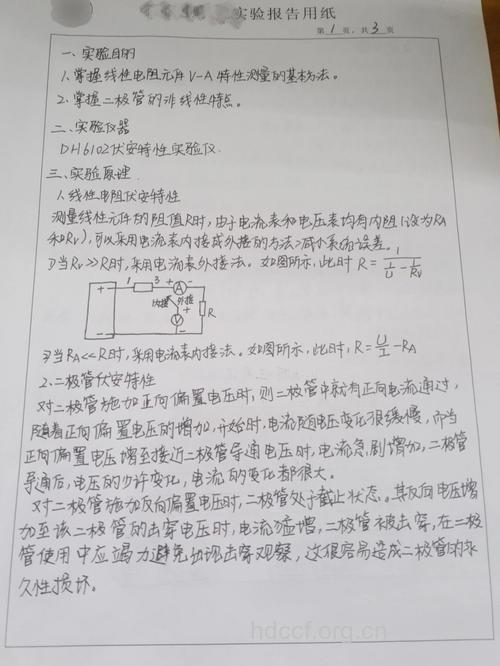 实验报告用纸
第 1 页，共 3 页
一、实验目的
1.掌握线性电阻元件V-A特性测量的基本方法。
2.掌握二极管的非线性特点。
二、实验仪器
DH6102伏安特性实验仪.
三、实验原理
1.线性电阻伏安特性
测量线性元件的阻值R时,由于电流表和电压表均有内阻(设为RA
和RV),可以采用电流表内接或外接的方法减小系统误差。
1)当RV>>R时,采用电流表外接法。如图所示,此时 R = 1/(I/U - 1/RV)
1 3 + A -
内接 外接
+ V - R
2)当RA<<R时,采用电流表内接法。如图所示,此时,R = U/I - RA
2.二极管伏安特性
对二极管施加正向偏置电压时,则二极管中就有正向电流通过,
随着正向偏置电压的增加,开始时,电流随电压变化很缓慢,而当
正向偏置电压增至接近二极管导通电压时,电流急剧增加,二极管
导通后,电压的少许变化,电流的变化都很大。
对二极管施加反向偏置电压时,二极管处于截止状态。其反向电压增
加至该二极管的击穿电压时,电流猛增,二极管被击穿,在二极
管使用中应竭力避免出现击穿观察,这很容易造成二极管的永
久性损坏。
hdccf.org.cn